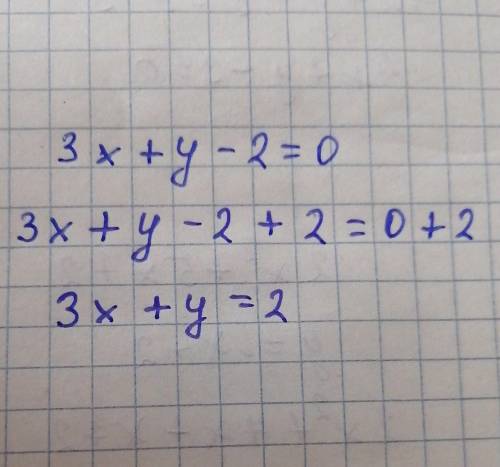 3x + y - 2 = 0
3x + y - 2 + 2 = 0 + 2
3x + y = 2